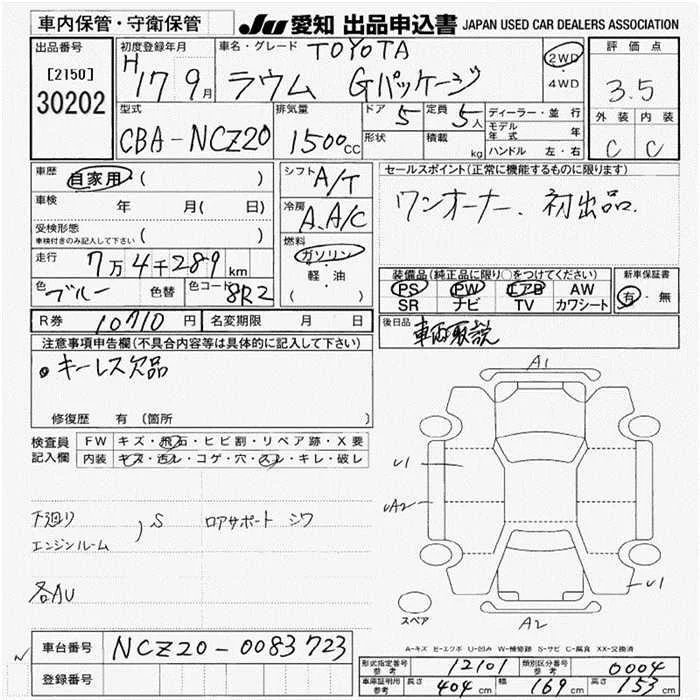 車内保管・守衛保管 JU 愛知 出品申込書 JAPAN USED CAR DEALERS ASSOCIATION
出品番号 初度登録年月 車名・グレード TOYOTA 2WD・4WD 評価点
[2150] H 17 9月 ラウム Gパッケージ 3.5
30202 型式 排気量 ドア 5 定員 5人 ディーラー・並行 外装 内装
CBA-NCZ20 1500cc 形状 積載 kg モデル年式 年 C C
ハンドル 左・右
車歴 自家用( ) シフト A/T セールスポイント(正常に機能するものに限ります)
車検 年 月( 日) 冷房 A.A/C ワンオーナー、初出品.
受検形態
車検付きのみ記入して下さい ( ) 燃料 ガソリン
走行 7万4千289km 軽・油 装備品(純正品に限り○をつけてください) 新車保証書
色 ブルー 色替 色コード 8R2 ( ) PS PW エアB AW 有・無
SR ナビ TV カワシート
R券 10710円 名変期限 月 日 後日品 車両取説
注意事項申告欄(不具合内容等は具体的に記入して下さい)
キーレス欠品
修復歴 有(箇所
検査員記入欄 FW キズ・飛石・ヒビ割・リペア跡・X要
内装 キズ・汚レ・コゲ・穴・スレ・キレ・破レ
A1
U1
UA2
下廻り , S ロアサポート シワ
エンジンルーム
U1
各AU
スペア A2
A-キズ E-エクボ U-凹み W-補修跡 S-サビ C-腐食 XX-交換済
車台番号 NCZ20-0083723
登録番号
形式指定番号 参考 12101 類別区分番号 参考 0004
車庫証明用 参考 長さ 404cm 幅 169cm 高さ 153cm